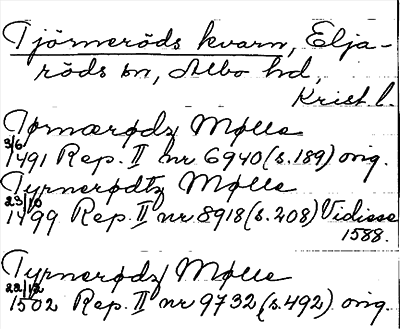 Tjörneröds kvarn, Elja-
röds sn, Albo hd,
Krist l.
Tørnærødz Mølle
3/6
1491 Rep. II nr 6940 (s. 189) orig.
Tyrnerødtz Mølle
23/10
1499 Rep. II nr 8918 (s. 208) Vidisse
1588.
Tyrnerødz Mølle
22/12
1502 Rep. II nr 9732 (s. 492) orig.